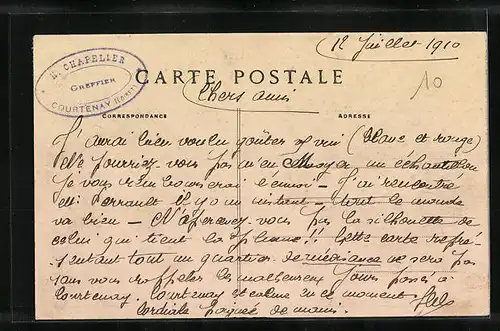 12 Juillet 1910
H. CHAPELIER
GREFFIER
COURTENAY (Loiret)
CARTE POSTALE
10
Chers amis
CORRESPONDANCE
ADRESSE
J'aurai bien voulu goûter vin (blanc et rouge)
Ne pourriez-vous pas m'en envoyer un échantillon
Je vous l'envoi - J'ai rencontré
Perrault il y a un instant - tout le monde
va bien - N'apercevez-vous pas la silhouette de
celui qui tient la plume!! Cette carte repré-
sentant tout un quartier de ne sera pas
sans vous rappeler les malheureux jours passés à
Courtenay. Courtenay est calme en ce moment.
Cordiale poignée de mains.